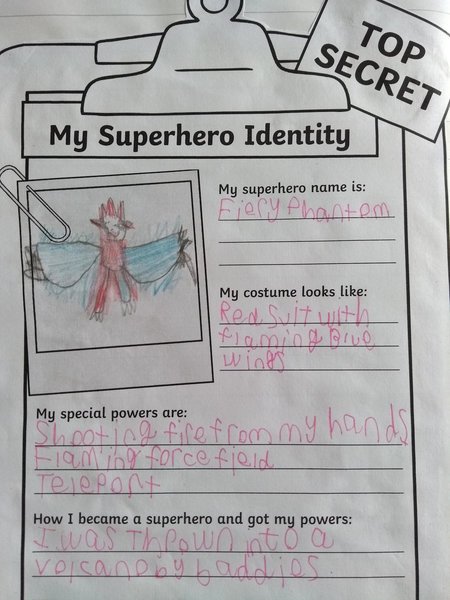 TOP
SECRET
My Superhero Identity
My superhero name is:
Fiery Phantom
My costume looks like:
Red suit with
flaming Blue
wings
My special powers are:
Shooting fire from my hands
Flaming force field
Teleport
How I became a superhero and got my powers:
I was Thrown into a
volcano by baddies